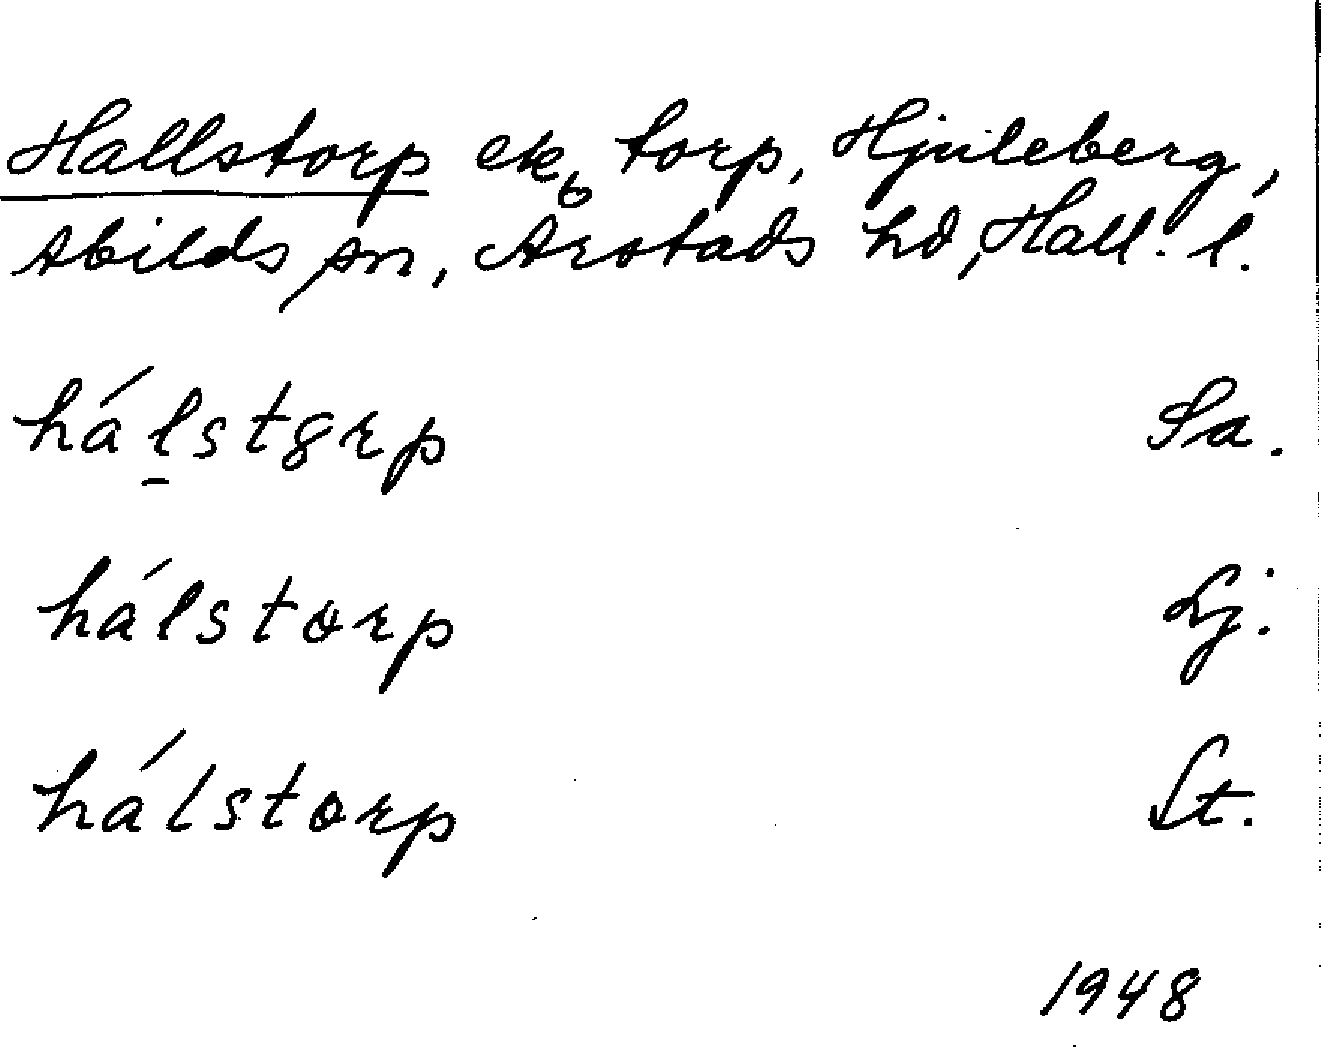 Hallstorp ek, torp, Hjuleberg,
Abilds sn, Årstads hd, Hall. l.
hálstɡrp Sa.
hálstorp Lj.
hálstorp St.
1948